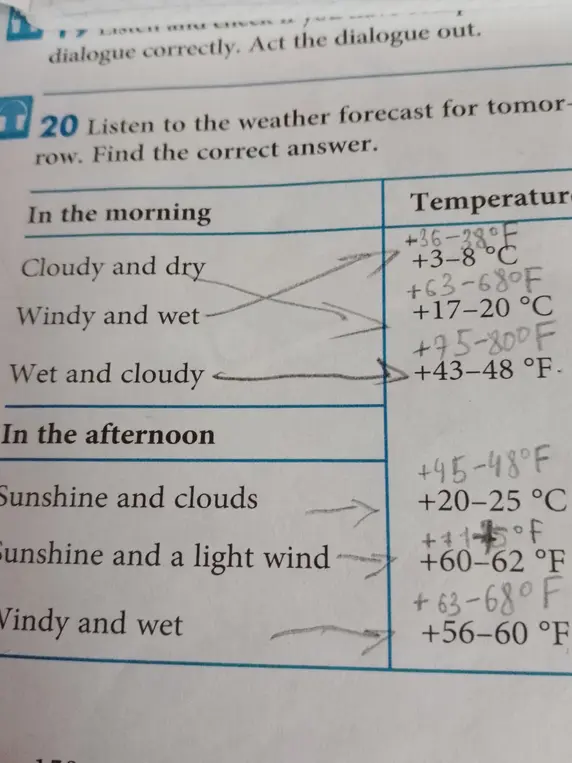 dialogue correctly. Act the dialogue out.
20 Listen to the weather forecast for tomor-
row. Find the correct answer.
In the morning
Temperatur
Cloudy and dry
+36-38°F
+3–8 °C
Windy and wet
+63-68°F
+17–20 °C
Wet and cloudy
+75-80°F
+43–48 °F
In the afternoon
Sunshine and clouds
+45-48°F
+20–25 °C
Sunshine and a light wind
+60–62 °F
Windy and wet
+63-68°F
+56–60 °F